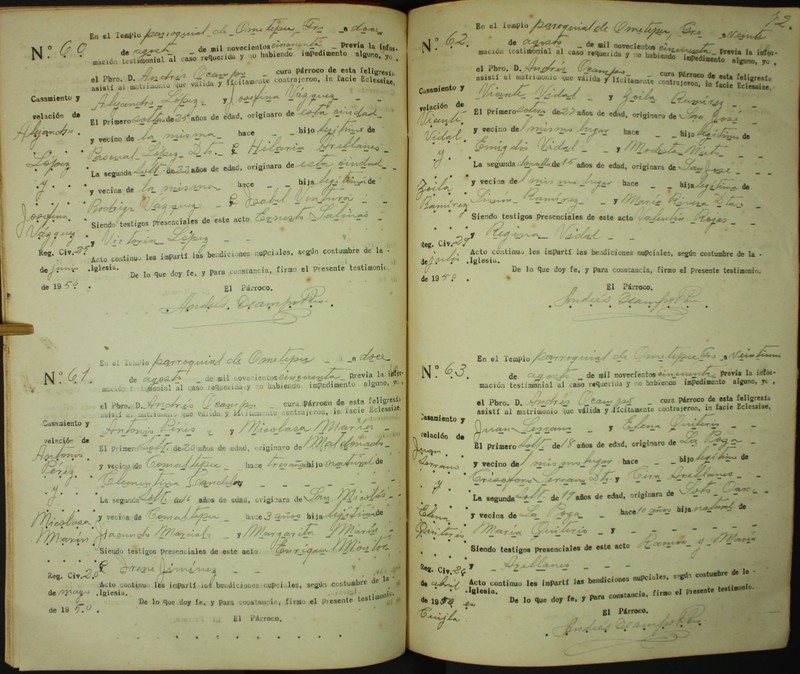 En el Templo parroquial de Ometepec, Gro a doce
Nº 60 de agosto de mil novecientos cincuenta Previa la infor-
mación testimonial al caso requerida y no habiendo impedimento alguno, yo,
el Pbro. D. Andrés Ocampo cura Párroco de esta feligresía
asistí al matrimonio que válida y lícitamente contrajeron, in facie Eclessiae,
Casamiento y Alejandro López y Josefina Vázquez
velación de El Primero solt. de 25 años de edad, originaro de esta ciudad
Alejandro y vecino de la misma hace - hijo legítimo de
López Pascual López Dto. y Hilaria Arellanes
La segunda solt. de 22 años de edad, originara de esta ciudad
y y vecina de la misma hace - hija legítima de
Josefina Rodrigo Vázquez y Isabel Ventura
Vázquez Siendo testigos Presenciales de este acto Ernesto Salinas
y Victoria López
Reg. Civ. 25 Acto continuo les impartí las bendiciones nupciales, según costumbre de la
de junio Iglesia.
de 1950 De lo que doy fe, y Para constancia, firmo el Presente testimonio.
El Párroco,
Andrés Ocampo Pbro.
En el Templo parroquial de Ometepec a doce
Nº 61. de agosto de mil novecientos cincuenta Previa la infor-
mación testimonial al caso requerida y no habiendo impedimento alguno, yo,
el Pbro. D. Andrés Ocampo cura Párroco de esta feligresía
asistí al matrimonio que válida y lícitamente contrajeron, in facie Eclessiae,
Casamiento y Antonio Pérez y Micolasa Marín
velación de El Primero solt. de 20 años de edad, originaro de Maldonado
Antonio y vecino de Comaltepec hace hijo natural de
Pérez Clementina
y La segunda solt. de años de edad, originara de San Nicolás
Micolasa y vecina de Comaltepec hace 3 años hija legítima de
Marín y Margarita
Siendo testigos Presenciales de este acto Enrique
e Irene Jiménez
Reg. Civ. 20 Acto continuo les impartí las bendiciones nupciales, según costumbre de la
de mayo Iglesia.
de 1950. De lo que doy fe, y Para constancia, firmo el Presente testimonio.
El Párroco,
72.
En el Templo parroquial de Ometepec Gro a veinte
Nº 62. de agosto de mil novecientos cincuenta Previa la infor-
mación testimonial al caso requerida y no habiendo impedimento alguno, yo,
el Pbro. D. Andrés Ocampo cura Párroco de esta feligresía
asistí al matrimonio que válida y lícitamente contrajeron, in facie Eclessiae,
Casamiento y Vicente Vidal y Zoila Ramírez
velación de El Primero soltero de 27 años de edad, originaro de San José
Vicente y vecino del mismo lugar hace - hijo legítimo de
Vidal Emigdio Vidal y Modesta
y La segunda de 15 años de edad, originara de San José
Zoila y vecina del mismo lugar hace - hija legítima de
Ramírez Ramírez y María Rivera Dta.
Siendo testigos Presenciales de este acto Valentín Reyes
y Regina Vidal
Reg. Civ. 29 Acto continuo les impartí las bendiciones nupciales, según costumbre de la
de julio Iglesia.
de 1950 De lo que doy fe, y Para constancia, firmo el Presente testimonio.
El Párroco,
Andrés Ocampo Pbro.
En el Templo parroquial de Ometepec Gro a veintiuno
Nº 63. de agosto de mil novecientos cincuenta Previa la infor-
mación testimonial al caso requerida y no habiendo impedimento alguno, yo,
el Pbro. D. Andrés Ocampo cura Párroco de esta feligresía
asistí al matrimonio que válida y lícitamente contrajeron, in facie Eclessiae,
Casamiento y Juan Serrano y Elena Quiterio
velación de El Primero solt. de 18 años de edad, originaro de La Poza
Juan y vecino del mismo lugar hace - hijo legítimo de
Serrano Crisóforo Serrano Dto. y Arellanes
y La segunda solt. de 19 años de edad, originara de
Elena y vecina de La Poza hace 10 años hija natural de
Quiterio María Quiterio y
Siendo testigos Presenciales de este acto Ramón y María
Arellanes
Reg. Civ. 26 Acto continuo les impartí las bendiciones nupciales, según costumbre de la
de abril Iglesia.
de 1950 en De lo que doy fe, y Para constancia, firmo el Presente testimonio.
El Párroco,
Andrés Ocampo Pbro.